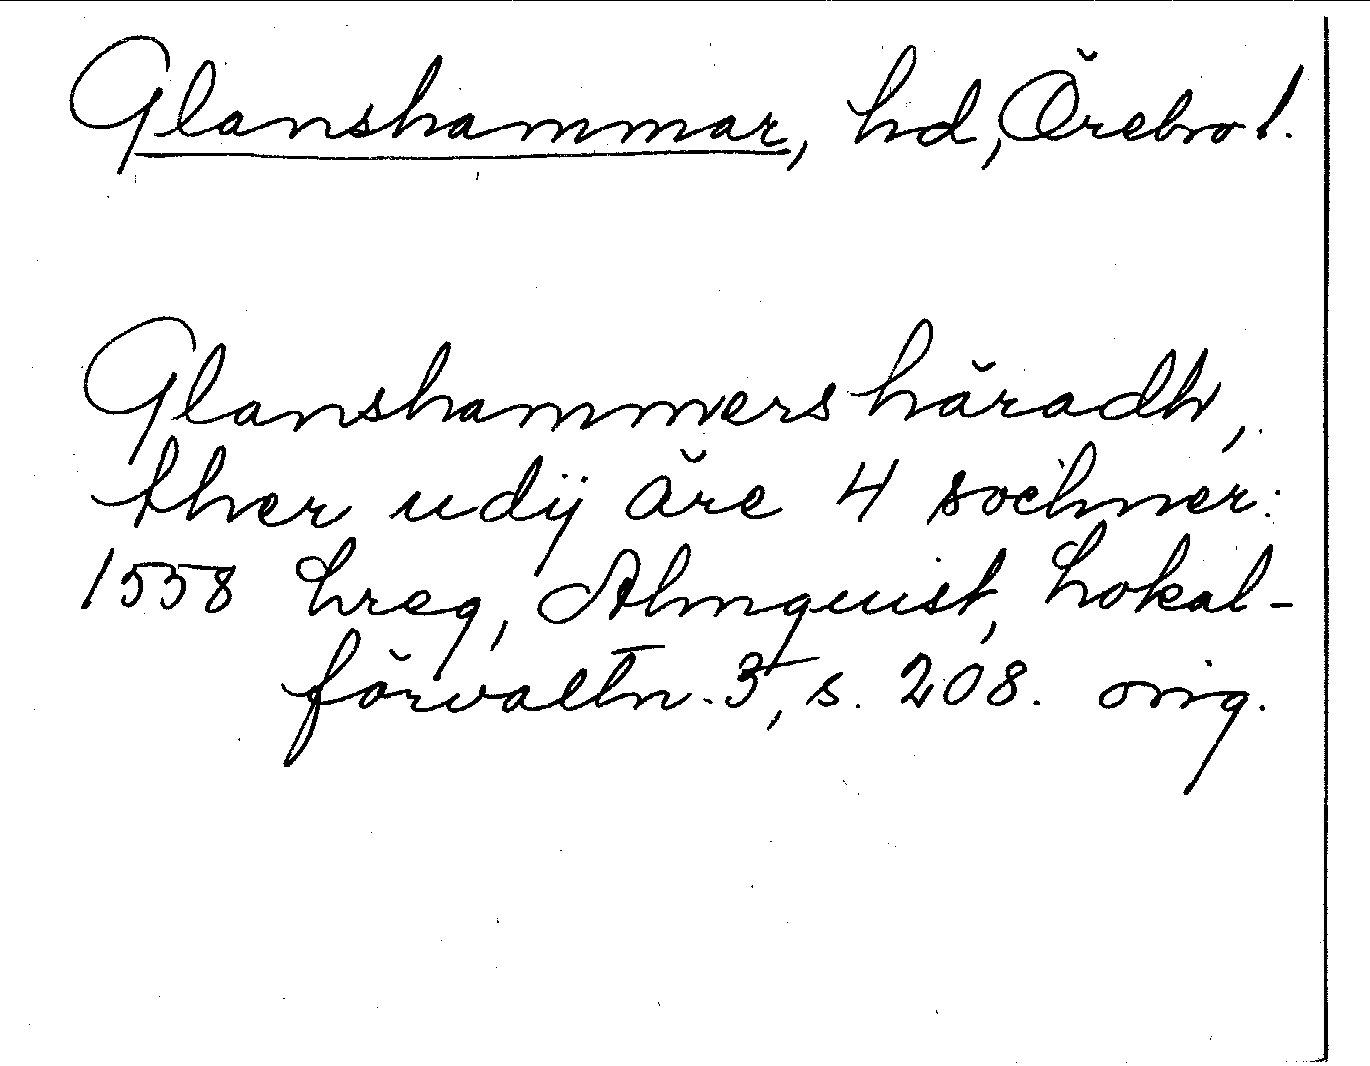 Glanshammar, hd, Örebro l.
Glanshammers häradh,
ther udij äre 4 sochner:
1558 hreg, Almquist, Lokal-
förvaltn. 3, s. 208. orig.